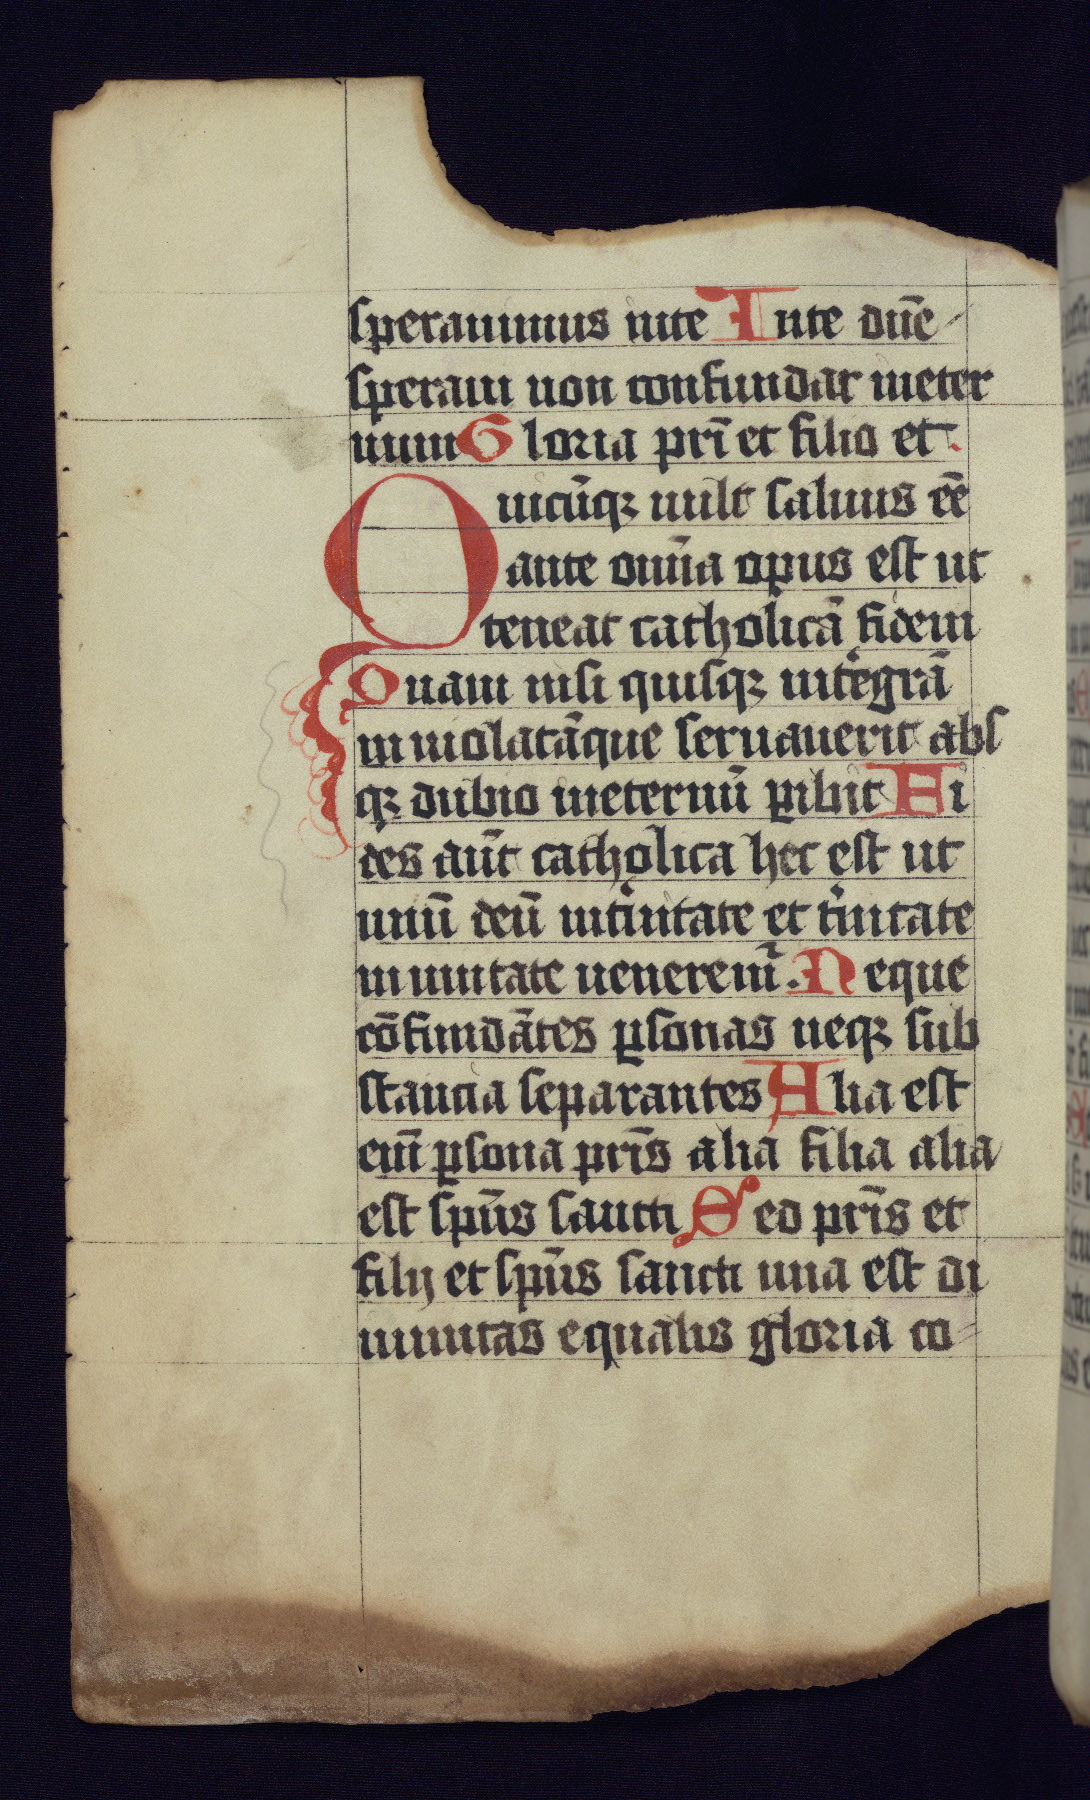 sperauimus inte Inte dn̄e
speraui non confundar ineter
num Gloria pr̄i et filio et.
Quicūqꝫ uult saluus eē
ante om̄ia opus est ut
teneat catholicā fidem
Quam nisi quisqꝫ integrā
inuiolatāque seruauerit abs
qꝫ dubio ineternū ꝑibit Fi
des aūt catholica hec est ut
unū deū intinitate et tinitate
in unitate ueneremr̄. Neque
cōfundātes ꝑsonas neqꝫ sub
stancia separantes Alia est
eni̅ ꝑsona pr̄is alia filia alia
est sp̄us sancti Sed pr̄is et
filij et sp̄us sancti una est di
uinitas equalis gloria co=